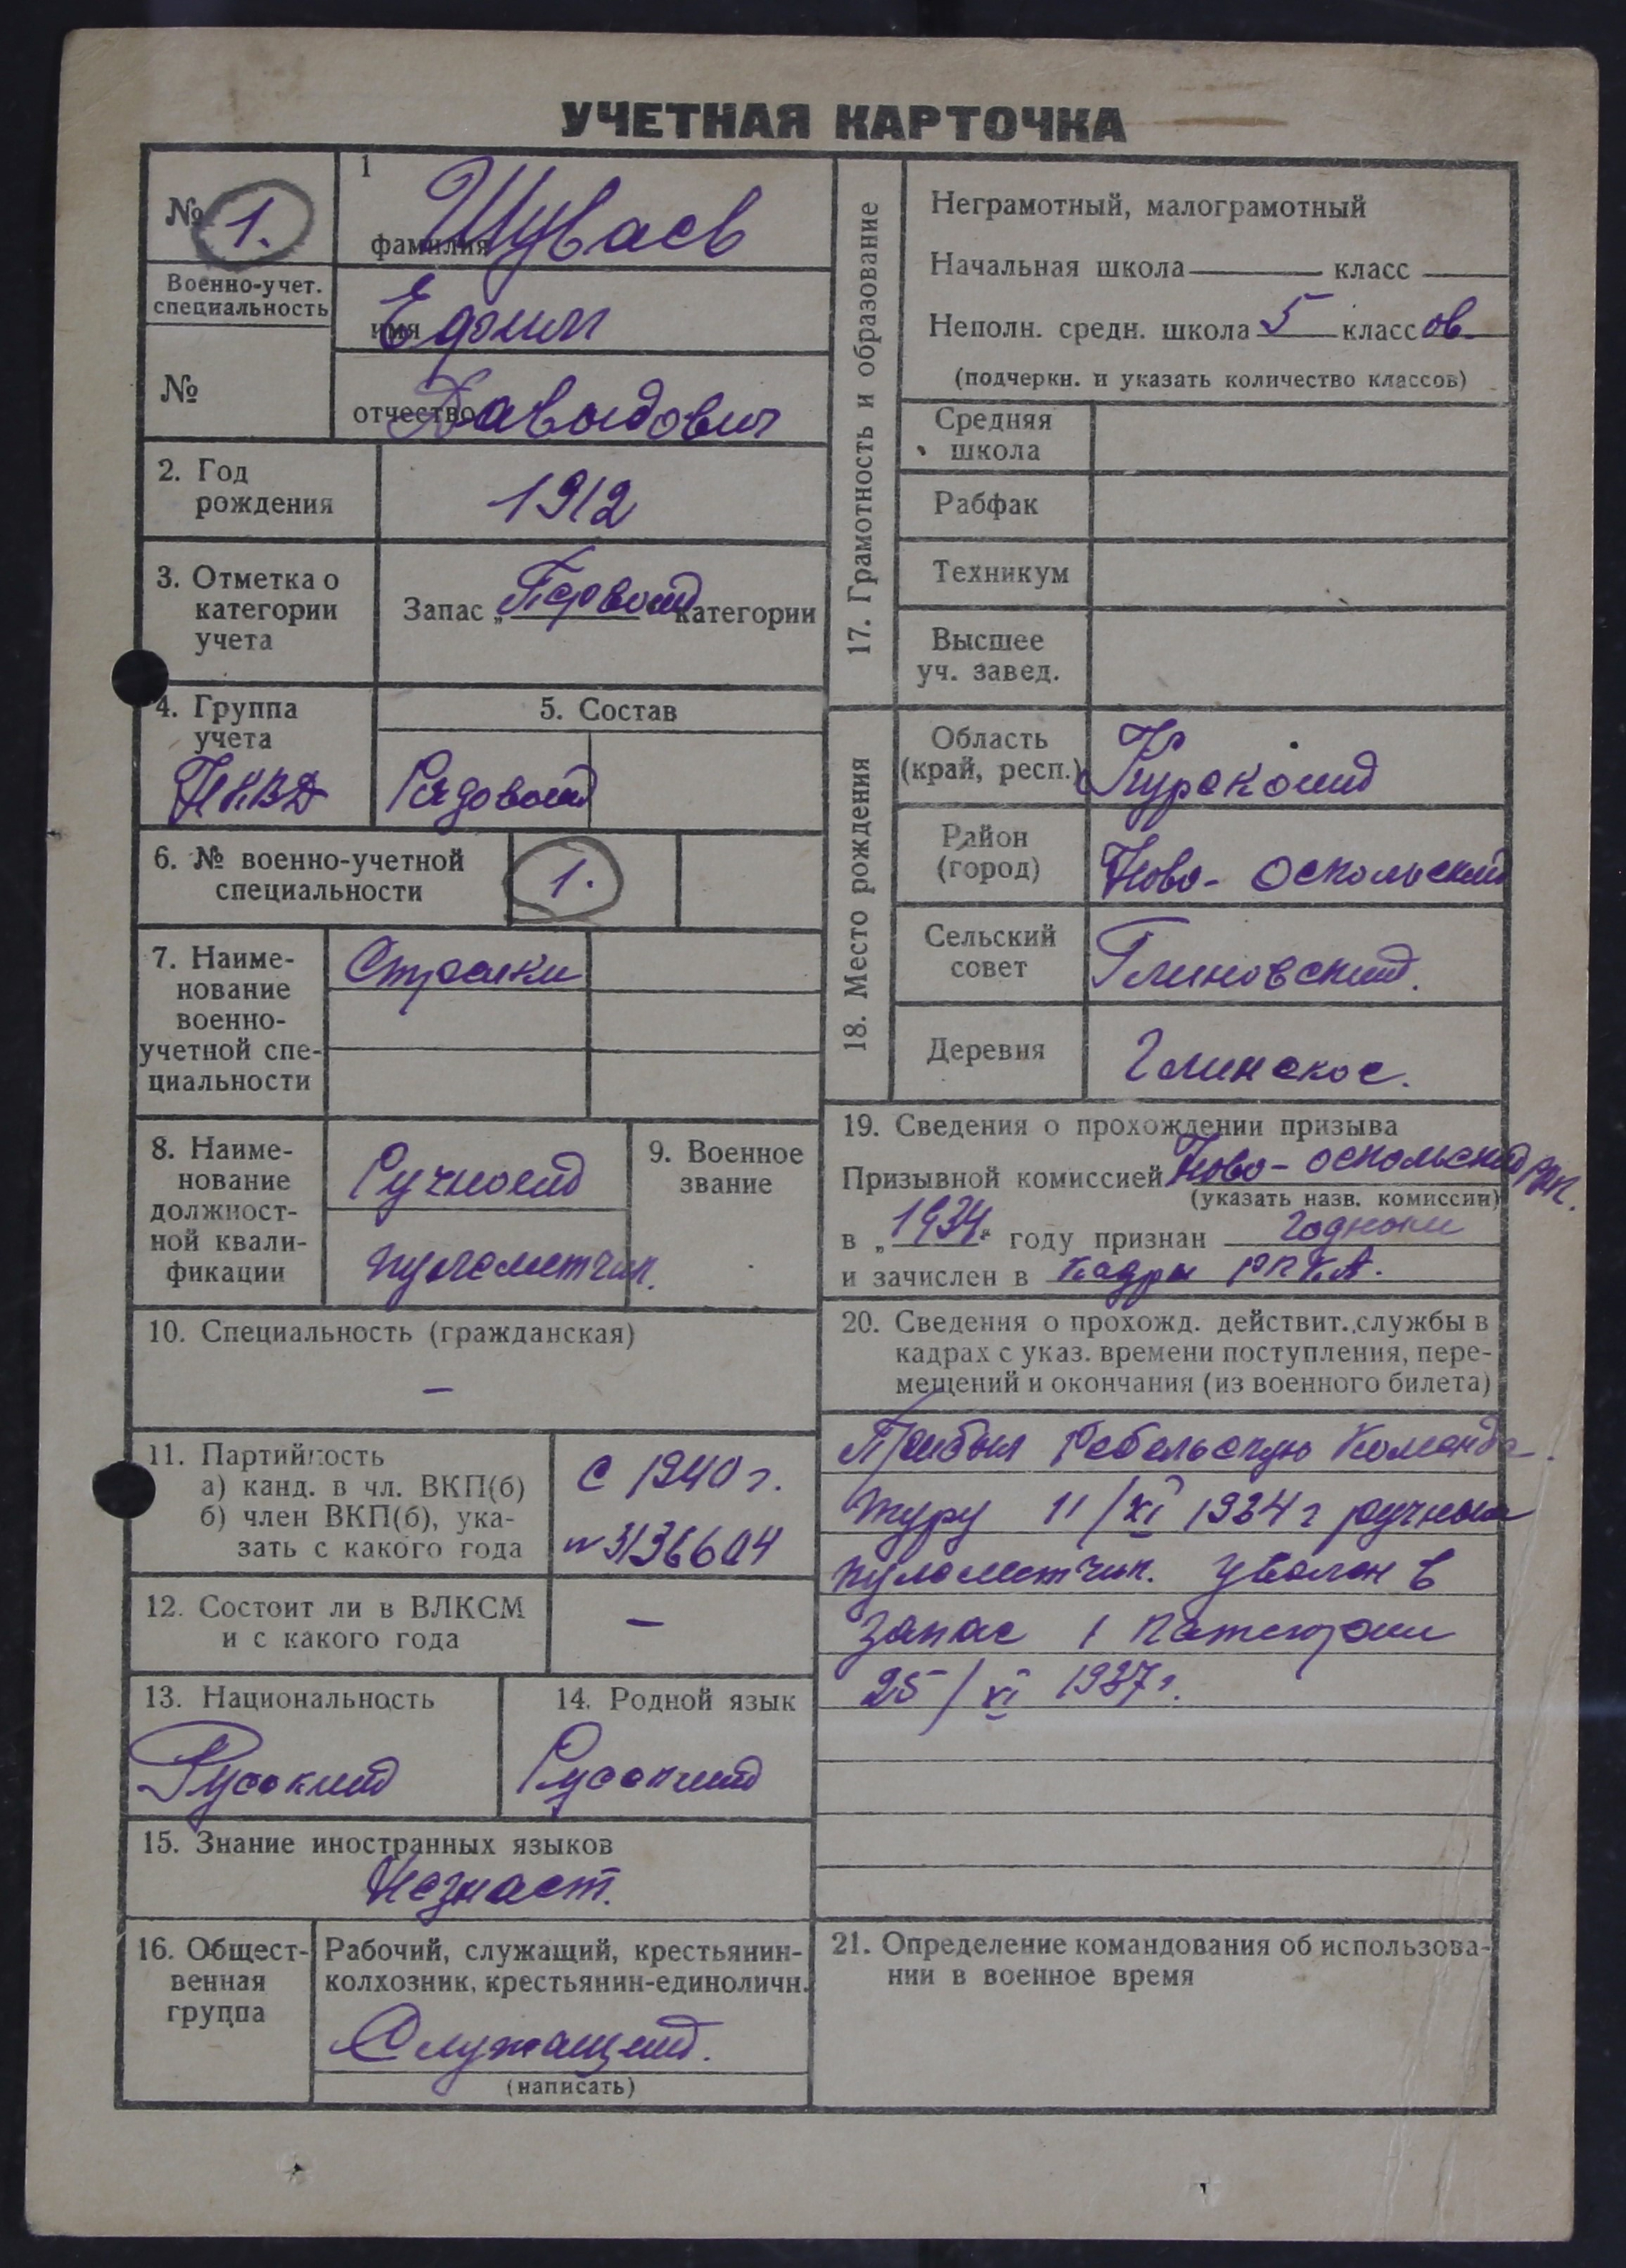 УЧЕТНАЯ КАРТОЧКА
№ 1.
Военно-учет. специальность
№
1
фамилия Шуваев
имя Едоим
отчество Давыдович
2. Год рождения
1912
3. Отметка о категории учета
Запас „Первой“ категории
4. Группа учета
НКВД
5. Состав
Рядовой
6. № военно-учетной специальности
1.
7. Наименование военно-учетной специальности
Стрелки
8. Наименование должностной квалификации
Ручной
пулеметчик.
9. Военное звание
10. Специальность (гражданская)
—
11. Партийность
а) канд. в чл. ВКП(б)
б) член ВКП(б), указать с какого года
с 1940 г.
№ 3136604
12. Состоит ли в ВЛКСМ
и с какого года
—
13. Национальность
Русский
14. Родной язык
Русский
15. Знание иностранных языков
Незнает.
16. Общественная группа
Рабочий, служащий, крестьянин-
колхозник, крестьянин-единоличн.
Служащий.
(написать)
17. Грамотность и образование
Неграмотный, малограмотный
Начальная школа — класс —
Неполн. средн. школа 5 классов
(подчеркн. и указать количество классов)
Средняя школа
Рабфак
Техникум
Высшее уч. завед.
18. Место рождения
Область (край, респ.)
Курской
Район (город)
Ново-Оскольский
Сельский совет
Глиновский.
Деревня
Глинское.
19. Сведения о прохождении призыва
Призывной комиссией Ново-оскольский
(указать назв. комиссии)
в „1934“ году признан годным
и зачислен в кадры РККА.
20. Сведения о прохожд. действит. службы в
кадрах с указ. времени поступления, пере-
мещений и окончания (из военного билета)
Прибыл Ребельскую Коменда-
туру 11/XI 1934 г ручным
пулеметчик. уволен в
запас 1 категории
25/XI 1937 г.
21. Определение командования об использова-
нии в военное время